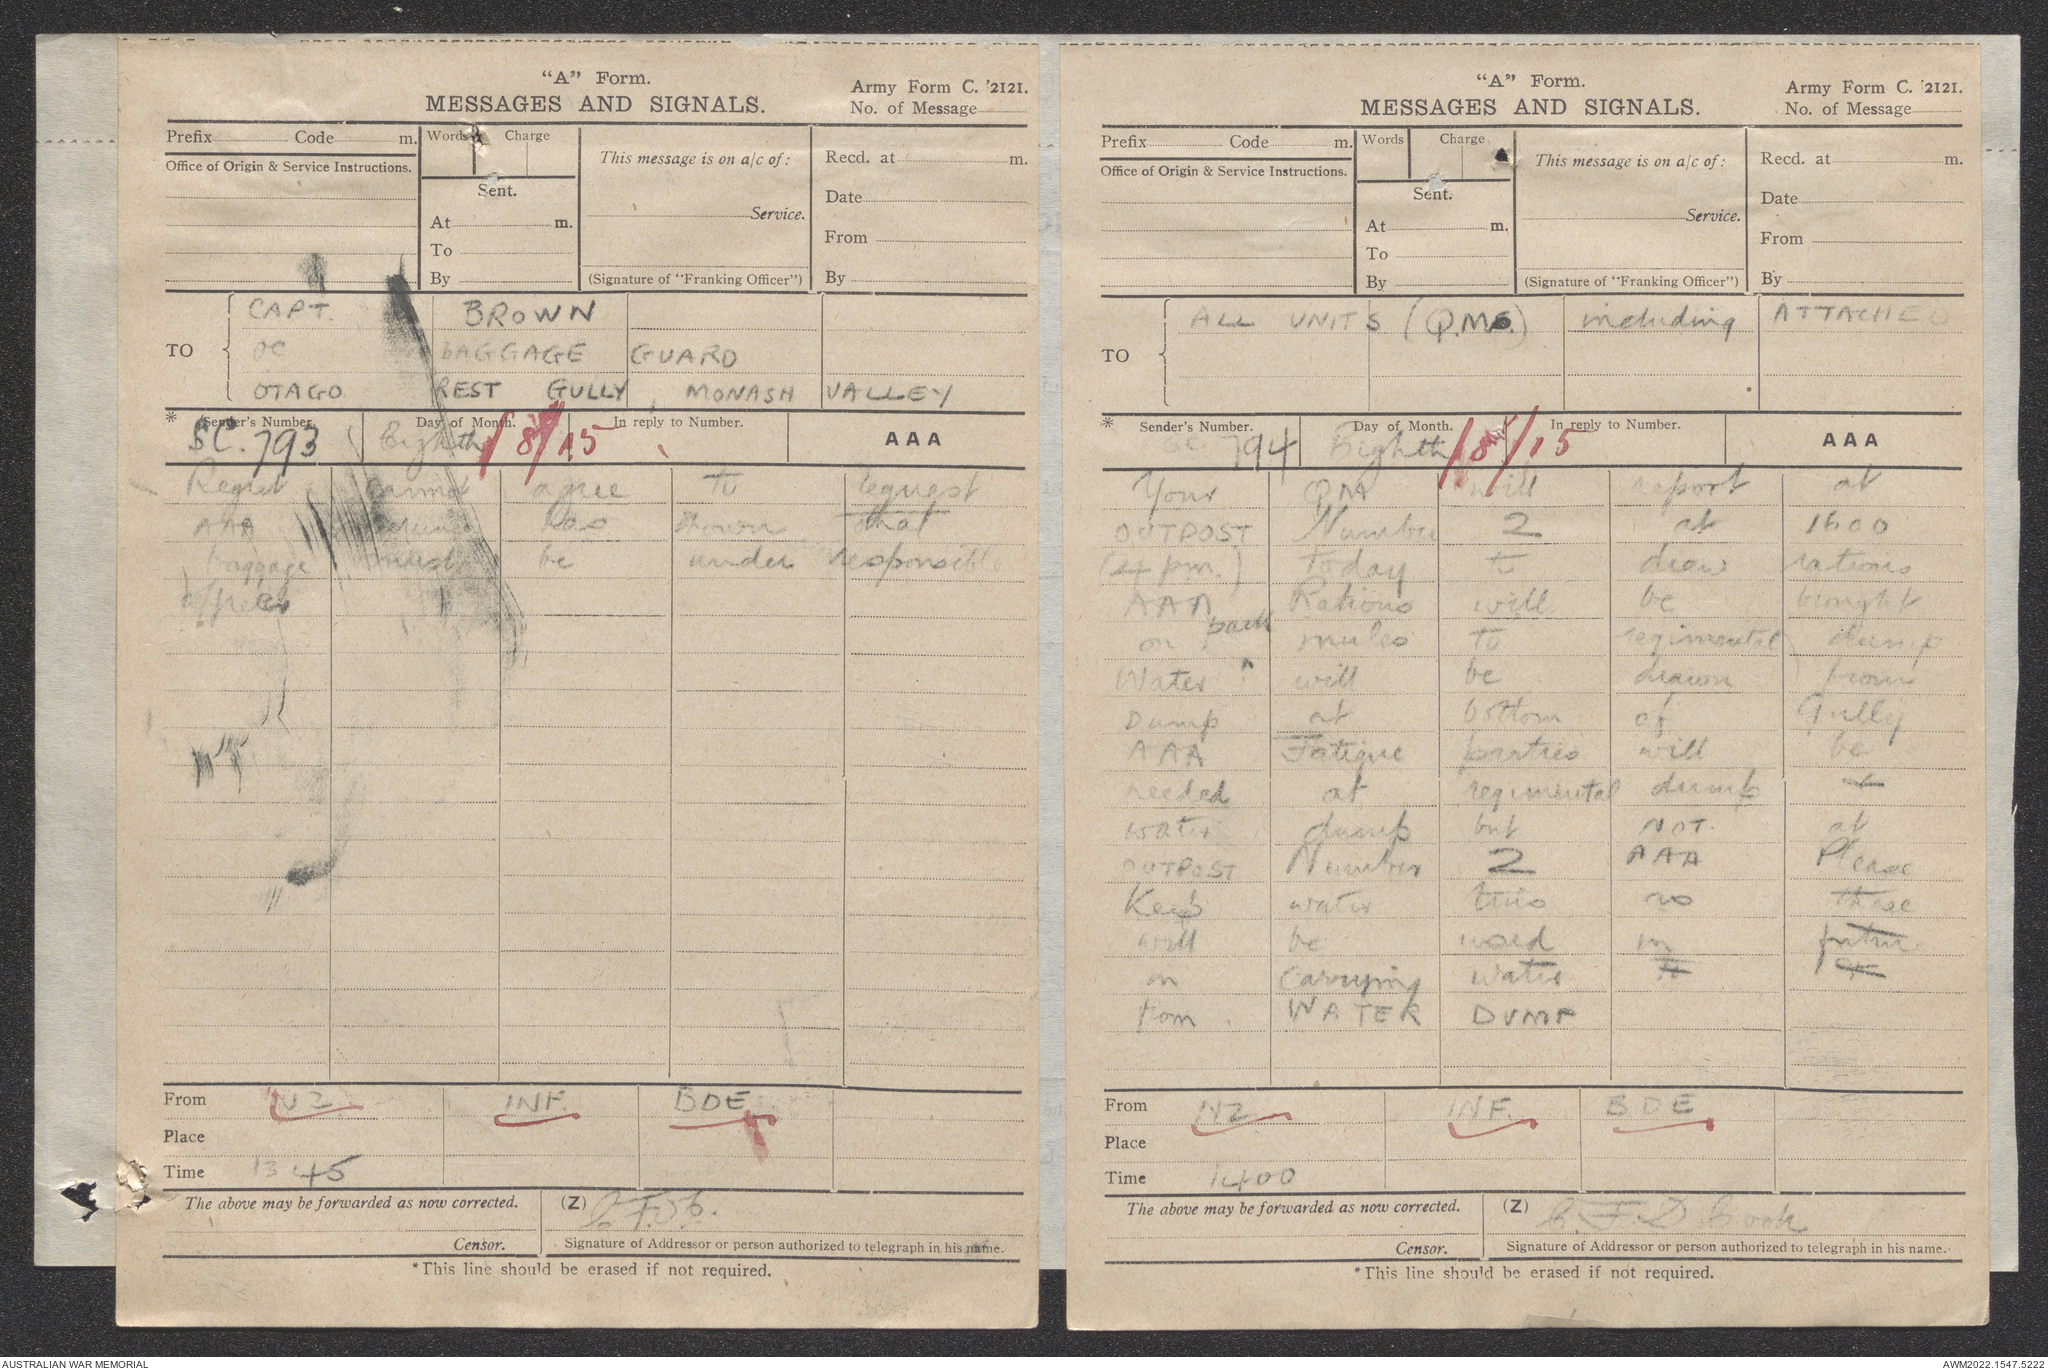 "A" Form.
MESSAGES AND SIGNALS.
Army Form C. 2121.
No. of Message
Prefix Code m.
Words Charge
This message is on a/c of:
Recd. at m.
Office of Origin & Service Instructions.
Sent.
Date
At m.
Service.
From
To
By
(Signature of "Franking Officer")
By
TO
CAPT. BROWN
OC BAGGAGE GUARD
OTAGO REST GULLY, MONASH VALLEY
* Sender's Number. Day of Month. In reply to Number.
SC. 793 Eighth /8/15 AAA
Regret cannot agree to request
AAA has shown that
baggage must be under responsible
officer
From NZ INF. BDE
Place
Time 1345
The above may be forwarded as now corrected. (Z)
Censor. Signature of Addressor or person authorized to telegraph in his name.
*This line should be erased if not required.
"A" Form.
MESSAGES AND SIGNALS.
Army Form C. 2121.
No. of Message
Prefix Code m.
Words Charge
This message is on a/c of:
Recd. at m.
Office of Origin & Service Instructions.
Sent.
Date
At m.
Service.
From
To
By
(Signature of "Franking Officer")
By
TO
ALL UNITS (Q.Ms.) including ATTACHED
* Sender's Number. Day of Month. In reply to Number.
SC 794 Eighth /8/15 AAA
Your QM will report at
OUTPOST Number 2 at 1600
(4 pm.) today to draw rations
AAA Rations will be brought
on pack mules to regimental dump
Water will be drawn from
Dump at bottom of Gully
AAA Fatigue parties will be
needed at regimental dump
water dump but NOT. at
OUTPOST Number 2 AAA Please
Keep water tins as these
will be used in future
on carrying water
from WATER DUMP
From NZ INF. BDE
Place
Time 1400
The above may be forwarded as now corrected. (Z) C.F.D Cook
Censor. Signature of Addressor or person authorized to telegraph in his name.
*This line should be erased if not required.
AUSTRALIAN WAR MEMORIAL
AWM2022.1547.5222